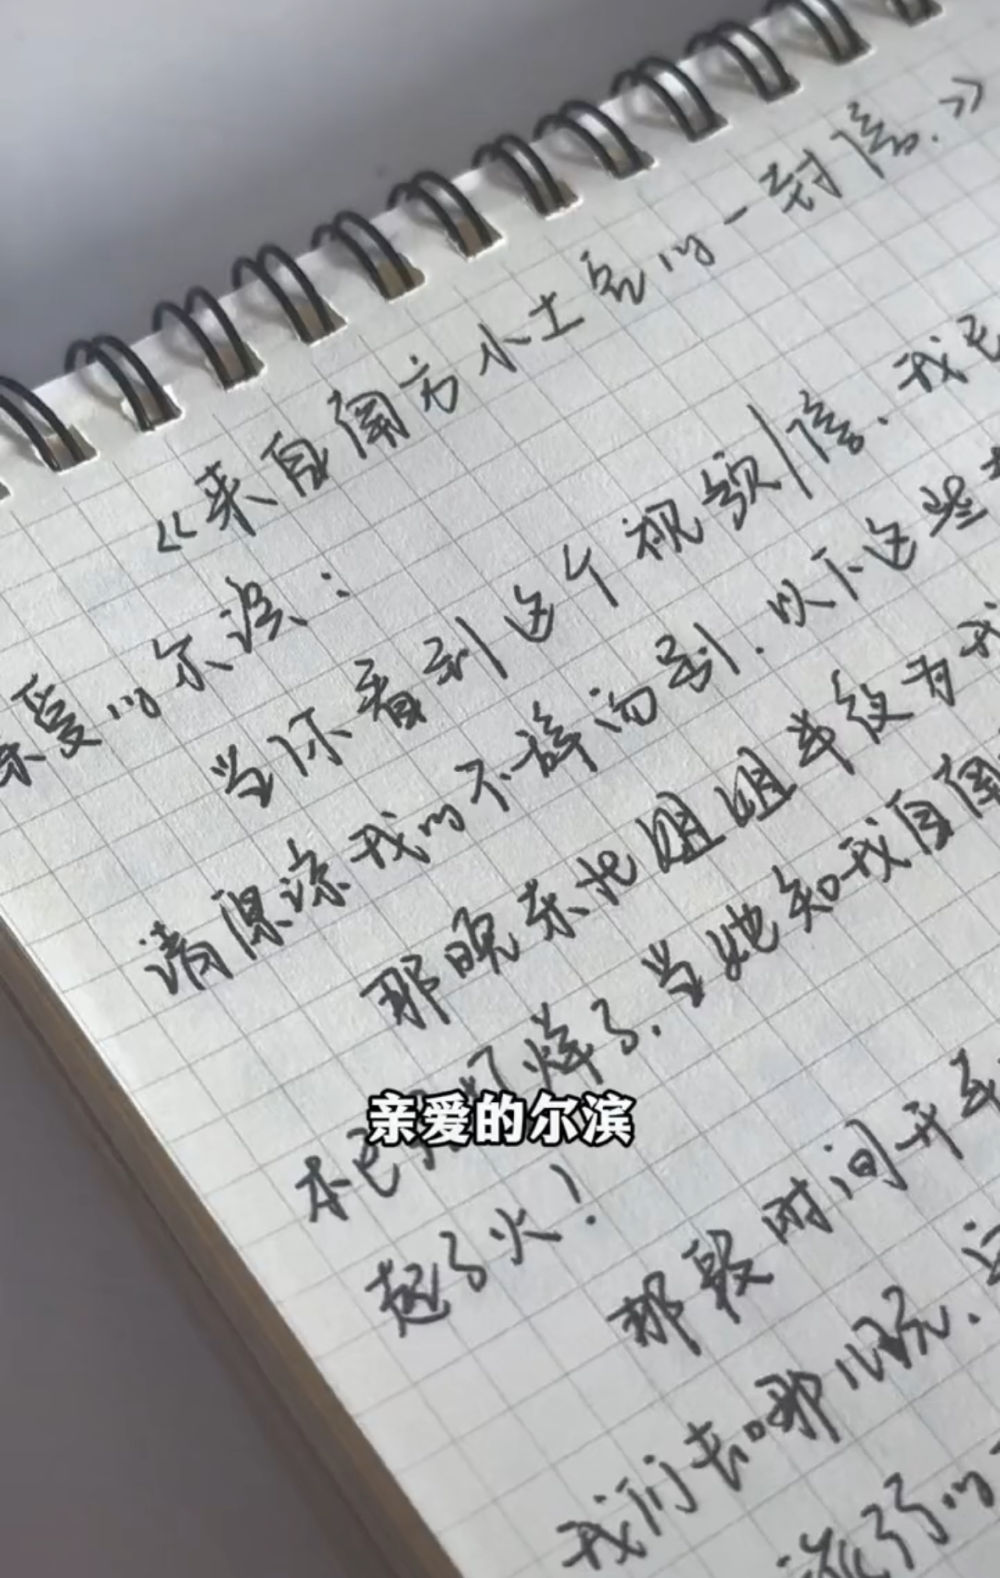 《来自南方小土豆的一封信.》
亲爱的尔滨：
当你看到这个视频/信、我已
请原谅我的不辞而别.以下这些
那晚东北姐姐半夜有
烊了.当她知我自南
亲爱的尔滨
本已
起了火！
那段时间开车
我们去哪儿玩.
弱的